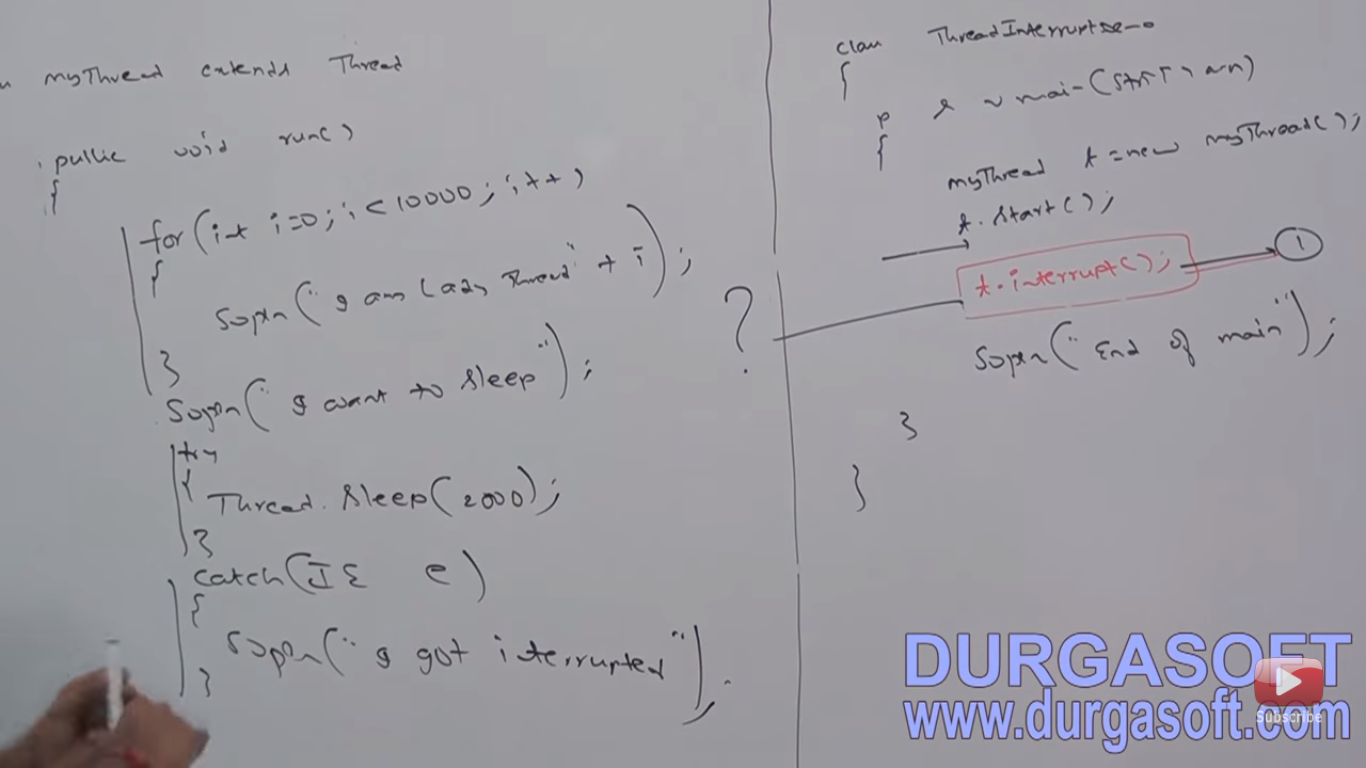 myThread extends Thread
public void run()
{
for(int i=0; i<10000; i++)
{
Sopln("I am Lazy Thread" + i);
}
Sopln("I want to sleep");
try
{
Thread.sleep(2000);
}
catch(IE e)
{
Sopln("I got interrupted");
}
?
class ThreadInterruptDemo
{
p s v main(String args)
{
myThread t=new myThread();
t.start();
t.interrupt(); 1
Sopln("End of main");
}
}
DURGASOFT
www.durgasoft.com
Subscribe